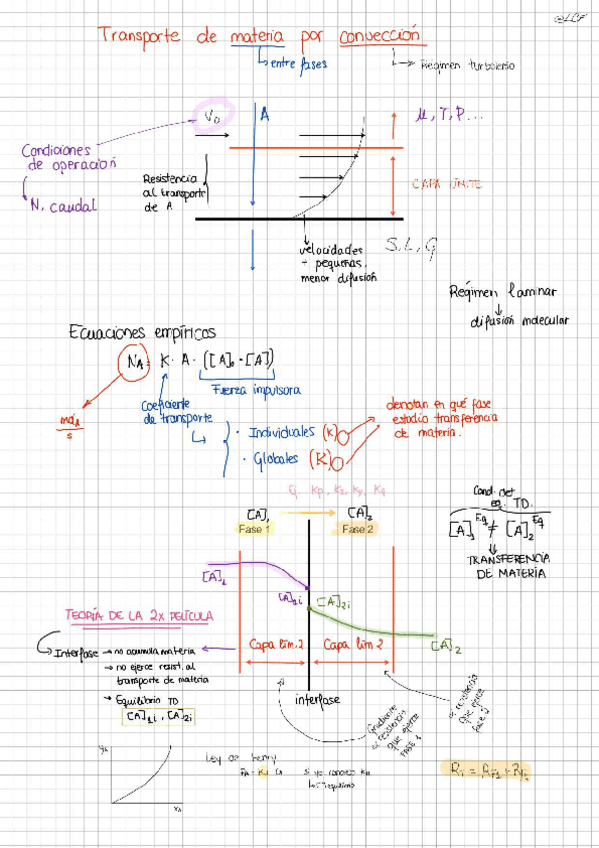 @LCF
Transporte de materia por convección
entre fases
Régimen turbulento
V0
A
μ, T, P...
Condiciones
de operación
N, caudal
Resistencia
al transporte
de A
CAPA LÍMITE
velocidades
+ pequeñas,
menor difusión
S, L, G
Régimen laminar
difusión molecular
Ecuaciones empíricos
NA = K · A · ([A]0 - [A])
Fuerza impulsora
molA
s
Coeficiente
de transporte
· Individuales (k)
· Globales (K)
denotan en qué fase
estudio transferencia
de materia.
Eq. Kp, Kx, Ky, Kg
[A]1
[A]2
Fase 1
Fase 2
Cond. del
eq. TD.
[A]1 Eq ≠ [A]2 Eq
TRANSFERENCIA
DE MATERIA
[A]1
[A]1i
[A]2i
[A]2
TEORÍA DE LA 2X PELÍCULA
Capa lím. 2
Capa lím 2
Interfase → no acumula materia
→ no ejerce resist. al
transporte de materia
→ Equilibrio TD
[A]1i, [A]2i
interfase
Gradiente
es resistencia
que ejerce
FASE 1
es resistencia
que ejerce
fase 2
yA
xA
Ley de Henry
si ya conoces
RT = RF1 + RF2